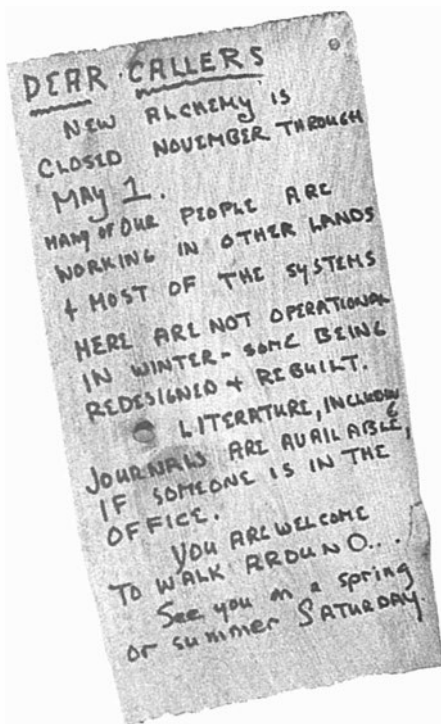 DEAR CALLERS
NEW ALCHEMY IS
CLOSED NOVEMBER THROUGH
MAY 1.
MANY OF OUR PEOPLE ARE
WORKING IN OTHER LANDS
+ MOST OF THE SYSTEMS
HERE ARE NOT OPERATIONAL
IN WINTER - SOME BEING
REDESIGNED + REBUILT.
LITERATURE, INCLUDING
JOURNALS ARE AVAILABLE,
IF SOMEONE IS IN THE
OFFICE.
YOU ARE WELCOME
TO WALK AROUND...
See you on a spring
or summer SATURDAY.